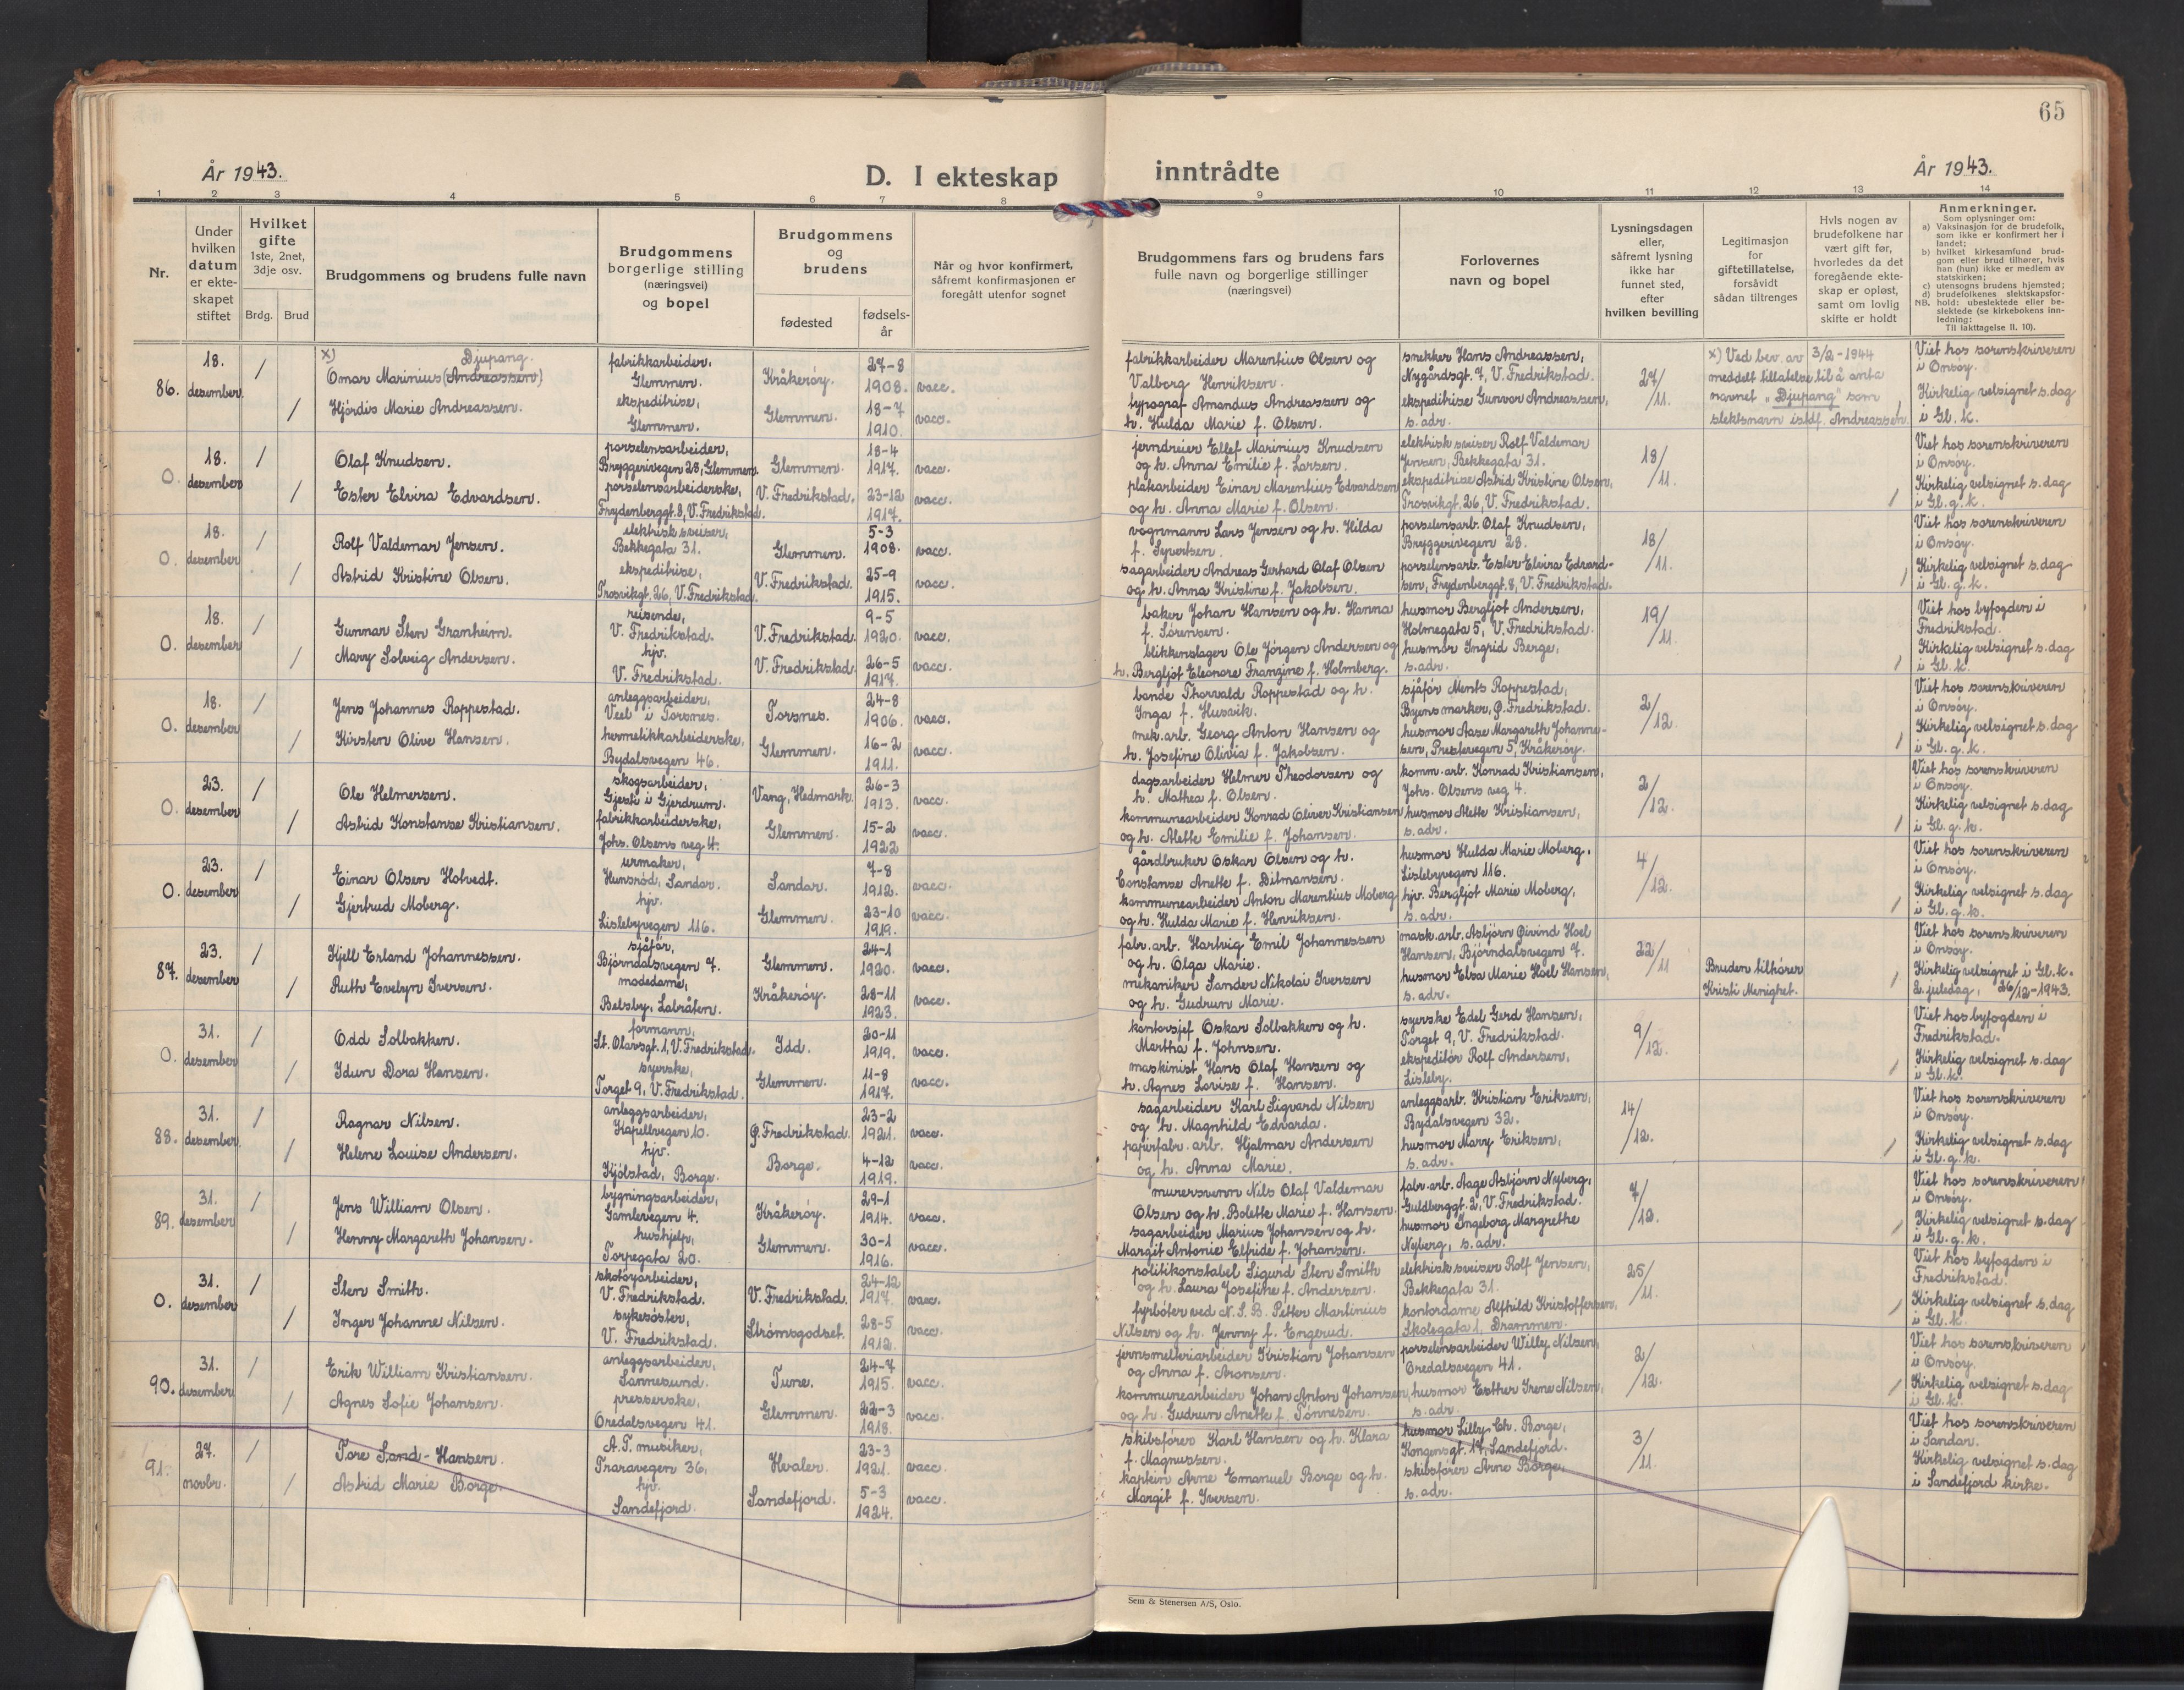 65
År 1943.
D. I ekteskap inntrådte
År 1943.
1 2 3 4 5 6 7 8 9 10 11 12 13 14
Nr.
Under hvilken datum er ekteskapet stiftet
Hvilket gifte 1ste, 2net, 3dje osv.
Brdg. Brud
Brudgommens og brudens fulle navn
Brudgommens borgerlige stilling (næringsvei) og bopel
Brudgommens og brudens
fødested
fødselsår
Når og hvor konfirmert, såfremt konfirmasjonen er foregått utenfor sognet
Brudgommens fars og brudens fars fulle navn og borgerlige stillinger (næringsvei)
Forlovernes navn og bopel
Lysningsdagen eller, såfremt lysning ikke har funnet sted, efter hvilken bevilling
Legitimasjon for giftetillatelse, forsåvidt sådan tiltrenges
Hvis nogen av brudefolkene har vært gift før, hvorledes da det foregående ekteskap er opløst, samt om lovlig skifte er holdt
Anmerkninger.
Som oplysninger om:
a) Vaksinasjon for de brudefolk, som ikke er konfirmert her i landet;
b) hvilket kirkesamfund brudgom eller brud tilhører, hvis han (hun) ikke er medlem av statskirken;
c) utensogns brudens hjemsted;
d) brudefolkenes slektskapsforhold: ubeslektede eller beslektede (se kirkebokens innledning:
NB. Til iakttagelse II. 10).
86. 18. desember. 1 x) Djupang. Omar Marinius (Andreassen) fabrikkarbeider, Glemmen. Kråkerøy. 27-8 1908. vacc.
1 Hjördis Marie Andreassen. ekspeditrise, Glemmen. Glemmen. 18-7 1910. vacc.
fabrikkarbeider Marentius Olsen og Valborg Henriksen.
typograf Amandus Andreassen og h. Hulda Marie f. Olsen.
snekker Hans Andreassen, Nygårdsgt. 7, V. Fredrikstad.
ekspeditrise Gunvor Andreassen, s. adr.
27/11.
x) Ved bev. av 3/2-1944 meddelt tillatelse til å anta navnet "Djupang" som slektsnavn istdf. Andreassen.
Viet hos sorenskriveren i Onsøy. Kirkelig velsignet s. dag i Gl. k.
0. 18. desember 1 Olaf Knudsen. porselensarbeider, Bryggerivegen 28, Glemmen. Glemmen. 18-4 1917. vacc.
1 Ester Elvira Edvardsen. porselensarbeiderske, Frydenberggt. 8, V. Fredrikstad. V. Fredrikstad. 23-12 1917. vacc.
jerndreier Ellef Marinius Knudsen og h. Anna Emilie f. Larsen.
platearbeider Einar Marentius Edvardsen og h. Anna Marie f. Olsen.
elektrisk sveiser Rolf Valdemar Jensen, Bekkegata 31.
ekspeditrise Astrid Kristine Olsen, Trosvikgt. 26, V. Fredrikstad.
18/11.
Viet hos sorenskriveren i Onsøy. Kirkelig velsignet s. dag i Gl. g. k.
0. 18. desember 1 Rolf Valdemar Jensen. elektrisk sveiser, Bekkegata 31. Glemmen. 5-3 1908. vacc.
1 Astrid Kristine Olsen. ekspeditrise, Trosvikgt. 26, V. Fredrikstad. V. Fredrikstad. 25-9 1915. vacc.
vognmann Lars Jensen og h. Hilda f. Syvertsen.
sagarbeider Andreas Gerhard Olaf Olsen og h. Anna Kristine f. Jakobsen.
porselensarb. Olaf Knudsen, Bryggerivegen 28.
porselensarb. Ester Elvira Edvardsen, Frydenberggt. 8, V. Fredrikstad.
18/11.
Viet hos sorenskriveren i Onsøy. Kirkelig velsignet s. dag i Gl. g. k.
0. 18. desember 1 Gunnar Sten Granheim. reisende, V. Fredrikstad. V. Fredrikstad. 9-5 1920. vacc.
1 Mary Solveig Andersen. hjv. V. Fredrikstad. V. Fredrikstad. 26-5 1917. vacc.
baker Johan Hansen og h. Hanna f. Sørensen.
blikkenslager Ole Jørgen Andersen og h. Bergljot Eleonore Franzine f. Holmberg.
husmor Bergljot Andersen, Holmegata 5, V. Fredrikstad.
husmor Ingrid Berge, s. adr.
19/11.
Viet hos byfogden i Fredrikstad. Kirkelig velsignet s. dag i Gl. k.
0. 18. desember 1 Jens Johannes Roppestad. anleggsarbeider, Veel i Torsnes. Torsnes. 24-8 1906. vacc.
1 Kirsten Olive Hansen. hermetikkarbeiderske, Bydalsvegen 46. Glemmen. 16-2 1911. vacc.
bonde Thorvald Roppestad og h. Inga f. Husvik.
mek. arb. Georg Anton Hansen og h. Josefine Olivia f. Jakobsen.
sjåfør Ments Roppestad, Byens marker, Ø. Fredrikstad.
husmor Aase Margareth Johannesen, Prestevegen 5, Kråkerøy.
2/12.
Viet hos sorenskriveren i Onsøy. Kirkelig velsignet s. dag i Gl. g. k.
0. 23. desember 1 Ole Helmersen. skogsarbeider, Gjesti i Gjerdrum. Vang, Hedmark. 26-3 1913. vacc.
1 Astrid Konstanse Kristiansen. fabrikkarbeiderske, Johs. Olsens veg 4. Glemmen. 15-2 1922 vacc.
dagsarbeider Helmer Theodorsen og h. Mathea f. Olsen.
kommunearbeider Konrad Oliver Kristiansen og h. Alette Emilie f. Johansen.
komm. arb. Konrad Kristiansen, Johs. Olsens veg 4.
husmor Alette Kristiansen, s. adr.
2/12.
Viet hos sorenskriveren i Onsøy. Kirkelig velsignet s. dag i Gl. g. k.
0. 23. desember 1 Einar Olsen Hotvedt. urmaker, Hunsrød, Sandar. Sandar. 7-8 1912. vacc.
1 Gjertrud Moberg. hjv. Lislebyvegen 116. Glemmen. 23-10 1919. vacc.
gårdbruker Oskar Olsen og h. Constanse Anette f. Ditmansen.
kommunearbeider Anton Marentius Moberg og h. Hulda Marie f. Henriksen.
husmor Hulda Marie Moberg, Lislebyvegen 116.
hjv. Bergljot Marie Moberg, s. adr.
4/12.
Viet hos sorenskriveren i Onsøy. Kirkelig velsignet s. dag i Gl. g. k.
87. 23. desember 1 Kjell Erland Johannessen. sjåfør, Bjørndalsvegen 7. Glemmen. 24-1 1920. vacc.
1 Ruth Evelyn Iversen. modedame, Belsby, Labråten. Kråkerøy. 28-11 1923. vacc.
fabr. arb. Hartvig Emil Johannessen og h. Olga Marie.
mekaniker Sander Nikolai Iversen og h. Gudrun Marie.
mask. arb. Asbjørn Øivind Hoel Hansen, Bjørndalsvegen 7.
husmor Elsa Marie Hoel Hansen, s. adr.
22/11
Bruden tilhører Kristi Menighet.
Viet hos sorenskriveren i Onsøy. Kirkelig velsignet i Gl. k. 2. juledag, 26/12-1943.
0. 31. desember 1 Odd Solbakken. formann, St. Olavsgt. 1, V. Fredrikstad. Idd. 20-11 1919. vacc.
1 Idun Dora Hansen. syerske, Torget 9, V. Fredrikstad. Glemmen. 11-8 1917. vacc.
kontorsjef Oskar Solbakken og h. Martha f. Johnsen.
maskinist Hans Olaf Hansen og h. Agnes Lovise f. Hansen.
syerske Edel Gerd Hansen, Torget 9, V. Fredrikstad.
ekspeditør Rolf Andersen, Lisleby.
9/12.
Viet hos byfogden i Fredrikstad. Kirkelig velsignet s. dag i Gl. k.
88. 31. desember. 1 Ragnar Nilsen. anleggsarbeider, Kapellvegen 10. Ø. Fredrikstad. 23-2 1921. vacc.
1 Helene Louise Andersen. hjv. Kjølstad, Borge. Borge. 4-12 1919. vacc.
sagarbeider Karl Sigvard Nilsen og h. Magnhild Edvarda.
papirfabr. arb. Hjalmar Andersen og h. Anna Marie.
anleggsarb. Kristian Eriksen, Bydalsvegen 32.
husmor Mary Eriksen, s. adr.
14/12.
Viet hos sorenskriveren i Onsøy. Kirkelig velsignet s. dag i Gl. g. k.
89. 31. desember 1 Jens William Olsen. bygningsarbeider, Gamlevegen 4. Kråkerøy. 29-1 1914. vacc.
1 Henny Margareth Johansen. hushjelp, Torpegata 20. Glemmen. 30-1 1916. vacc.
murersvenn Nils Olaf Valdemar Olsen og h. Bolette Marie f. Hansen.
sagarbeider Marius Johansen og h. Margit Antonie Elfride f. Johansen.
fabr. arb. Aage Asbjørn Nyberg, Guldberggt. 2, V. Fredrikstad.
husmor Ingeborg Margrethe Nyberg, s. adr.
7/12.
Viet hos sorenskriveren i Onsøy. Kirkelig velsignet s. dag i Gl. g. k.
0. 31. desember 1 Sten Smith. skotøyarbeider, V. Fredrikstad. V. Fredrikstad. 24-12 1917. vacc.
1 Inger Johanne Nilsen. sykesøster, V. Fredrikstad. Strømsgodset. 28-5 1912. vacc.
politikonstabel Sigurd Sten Smith og h. Laura Josefine f. Andersen.
fyrbøter ved N. S. B. Petter Martinius Nilsen og h. Jenny f. Engerud.
elektrisk sveiser Rolf Jensen, Bekkegata 31.
kontordame Alfhild Kristoffersen, Skolegata 1, Drammen.
25/11.
Viet hos byfogden i Fredrikstad. Kirkelig velsignet s. dag i Gl. k.
90. 31. desember 1 Erik William Kristiansen. anleggsarbeider, Sannesund. Tune. 24-7 1915. vacc.
1 Agnes Sofie Johansen. presserske, Oredalsvegen 41. Glemmen. 22-3 1918. vacc.
jernsmelteriarbeider Kristian Johansen og Anna f. Aronsen.
kommunearbeider Johan Anton Johansen og h. Gudrun Anette f. Tønnesen.
porselensarbeider Willy Nilsen, Oredalsvegen 41.
husmor Esther Irene Nilsen, s. adr.
2/12.
Viet hos sorenskriveren i Onsøy. Kirkelig velsignet s. dag i Gl. k.
91. 27. novbr. 1 Tore Sand-Hansen. A. T. musiker, Traravegen 36. Hvaler. 23-3 1921. vacc.
1 Astrid Marie Borge. hjv. Sandefjord. Sandefjord. 5-3 1924. vacc.
skibsfører Karl Hansen og h. Klara f. Magnussen.
kaptein Arne Emanuel Borge og h. Margit f. Iversen.
husmor Lilly Ch. Borge, Kongensgt. 17, Sandefjord.
skibsfører Arne Borge, s. adr.
3/11.
Viet hos sorenskriveren i Sandar. Kirkelig velsignet s. dag i Sandefjord kirke.
Sem & Stenersen A/S, Oslo.